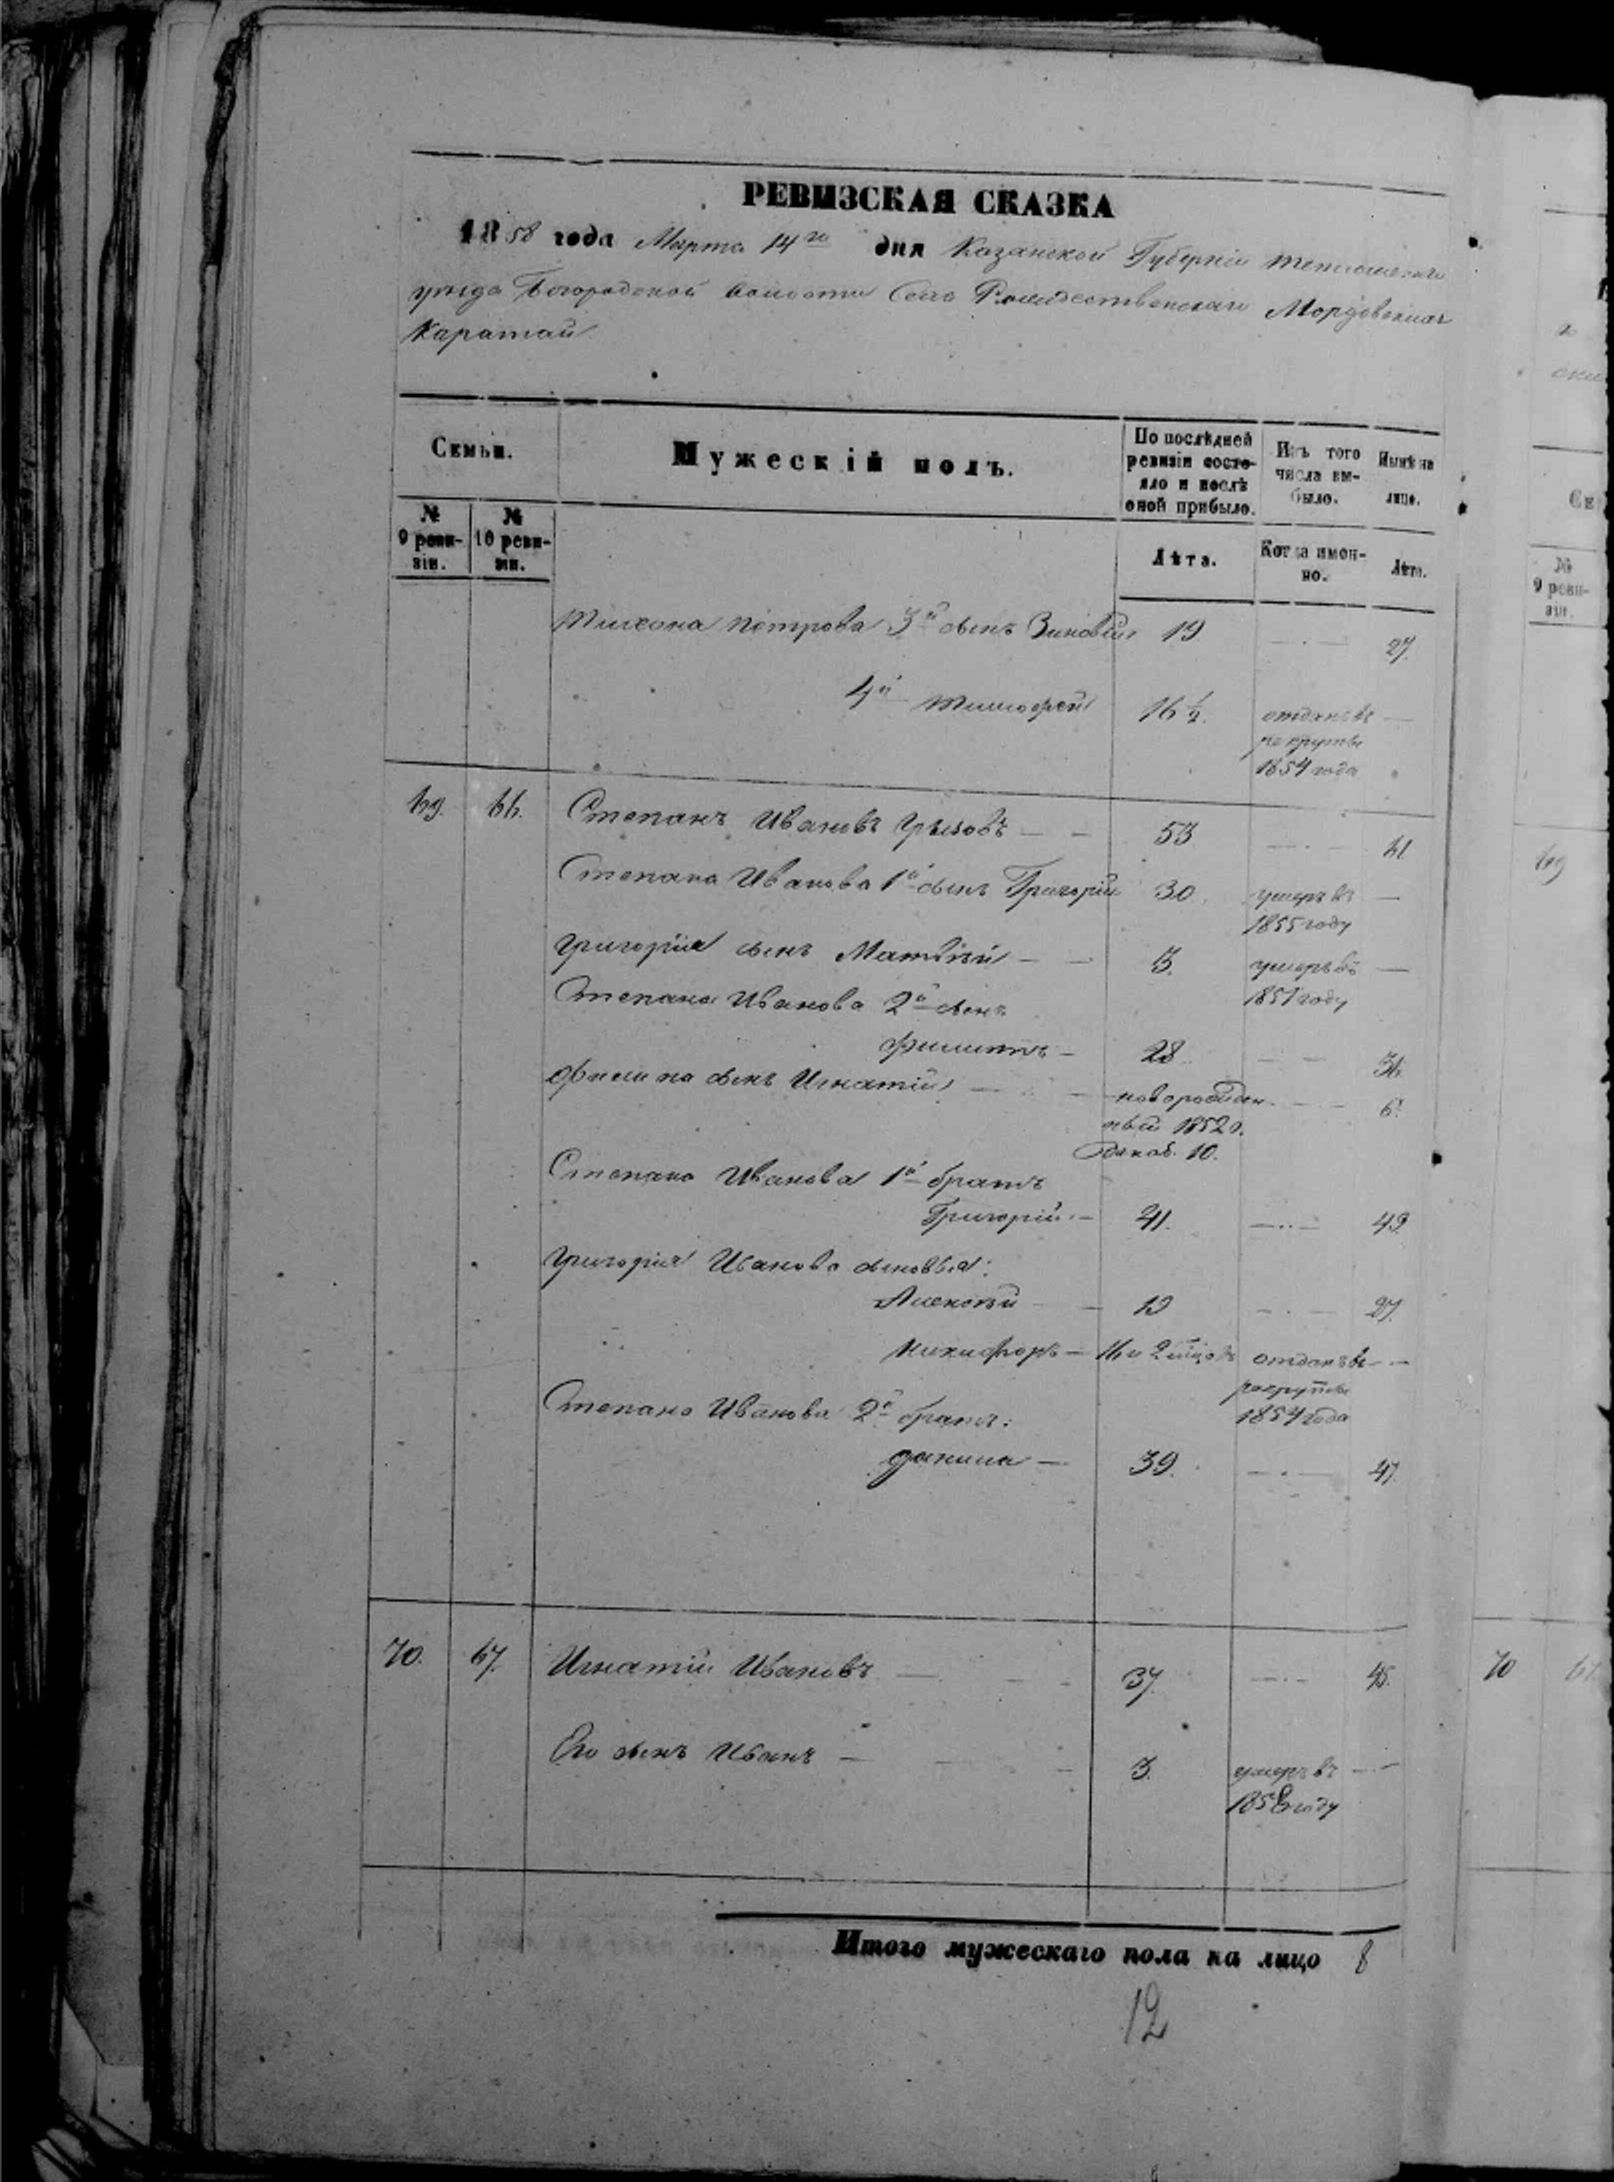 РЕВИЗСКАЯ СКАЗКА
1858 года Марта 14го дня Казанской Губерніи Тетюшскаго
уѣзда Богородской волости Села Рождественскаго Мордовских
Каратай
Семьи.
Мужескій полъ.
По послѣдней ревизіи состояло и послѣ оной прибыло.
Изъ того числа выбыло.
Нынѣ на лицо.
№ 9 ревизіи.
№ 10 ревизіи.
Лѣта.
Когда именно.
Лѣта.
Тихона Петрова 3й сынъ Зиновій 19 — 27.
4й Тимофей 16½. отданъ въ —
рекруты
1854 года
69. 66. Степанъ Ивановъ — — 53 — 61
Степана Иванова 1й сынъ Григорій 30. умеръ въ —
1855 году
Григорія сынъ Матвѣй — — 3. умеръ въ —
Степана Иванова 2й сынъ 1851 году
Филиппъ — 28 — 36.
Филипа сынъ Игнатій — новорожден- — 6.
ный 1852 г.
Декаб. 10.
Степана Иванова 1й братъ
Григорій — 41. — 49
Григорія Иванова сыновья:
Алексѣй — 19 — 27.
Никифоръ — 16 и 2 мѣсяц отданъ въ —
рекруты
Степана Иванова 2й братъ: 1854 года
Данила — 39. — 47.
70. 67. Игнатій Ивановъ — 37. — 45.
Его сынъ Иванъ — 3. умеръ въ —
году
Итого мужескаго пола на лицо 8
12
69
70 67
№
9 реви-
зіи.